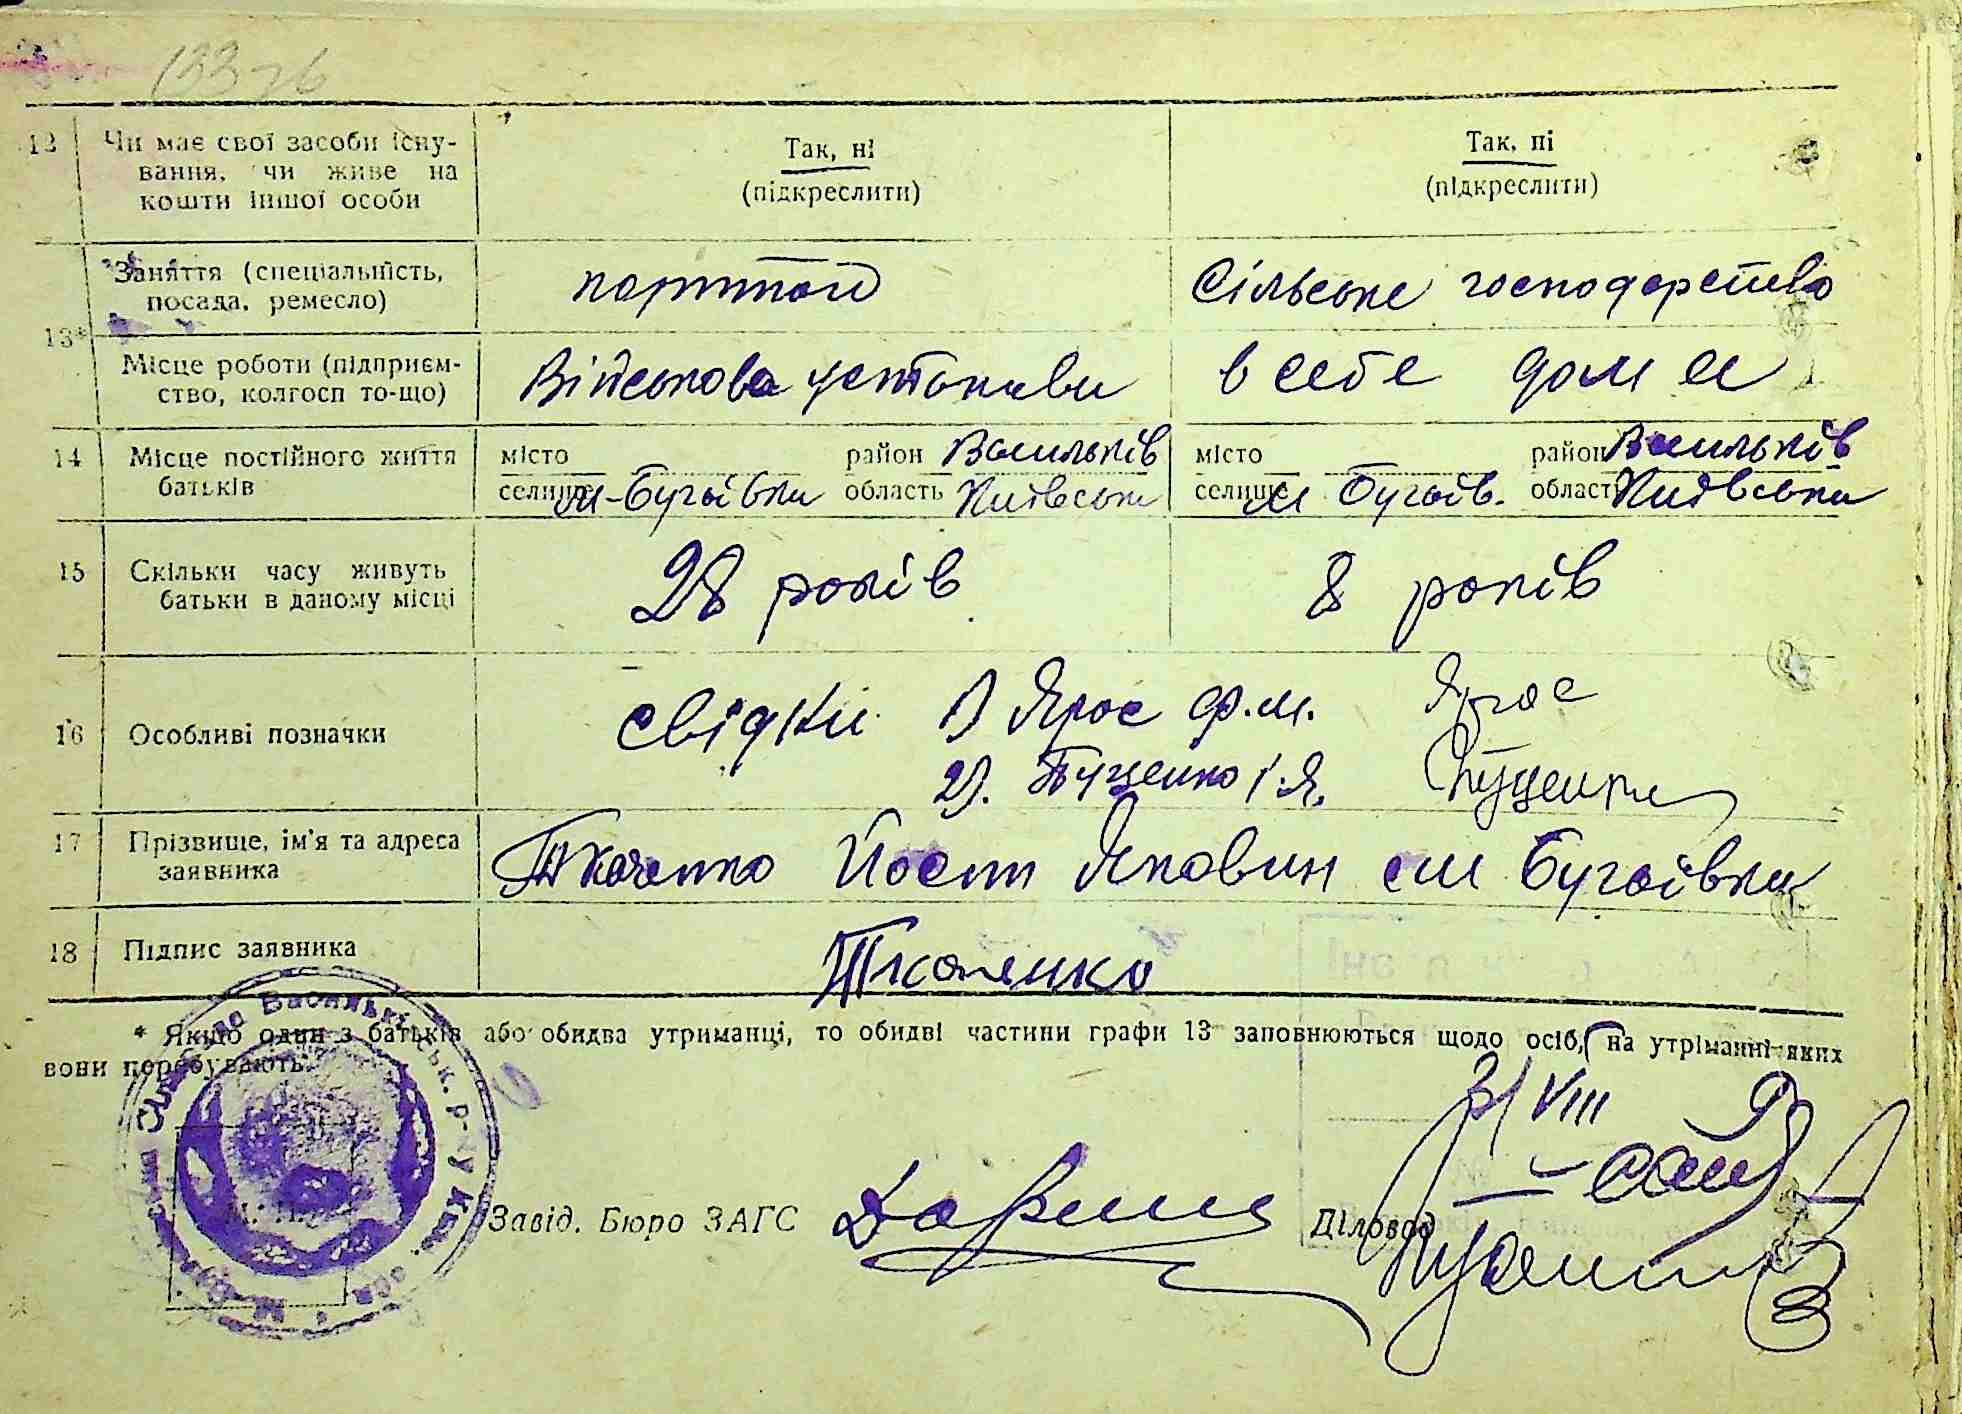 133 зв
12 Чи має свої засоби існу-
вання, чи живе на
кошти іншої особи
Так, ні
(підкреслити)
Так, ні
(підкреслити)
13*
Заняття (спеціальність,
посада, ремесло)
портной
Сільське господарство
Місце роботи (підприєм-
ство, колгосп то-що)
Військова установа
в себе дома
14 Місце постійного життя
батьків
місто район Васильків
селище М-Бугаївка область Київська
місто район Васильків
селище М Бугаїв. область Київська
15 Скільки часу живуть
батьки в даному місці
28 років
8 років
16 Особливі позначки
свідки 1) Ярос Ф.М. Ярос
2). Куценко І.Я. Куценко
17 Прізвище, ім'я та адреса
заявника
Ткаченко Йосип Якович с М Бугаївка
18 Підпис заявника
Ткаченко
* Якщо один з батьків або обидва утриманці, то обидві частини графи 13 заповнюються щодо осіб, на утріманні яких
вони перебувають.
31 VIII
М. П.
Завід. Бюро ЗАГС
Діловод